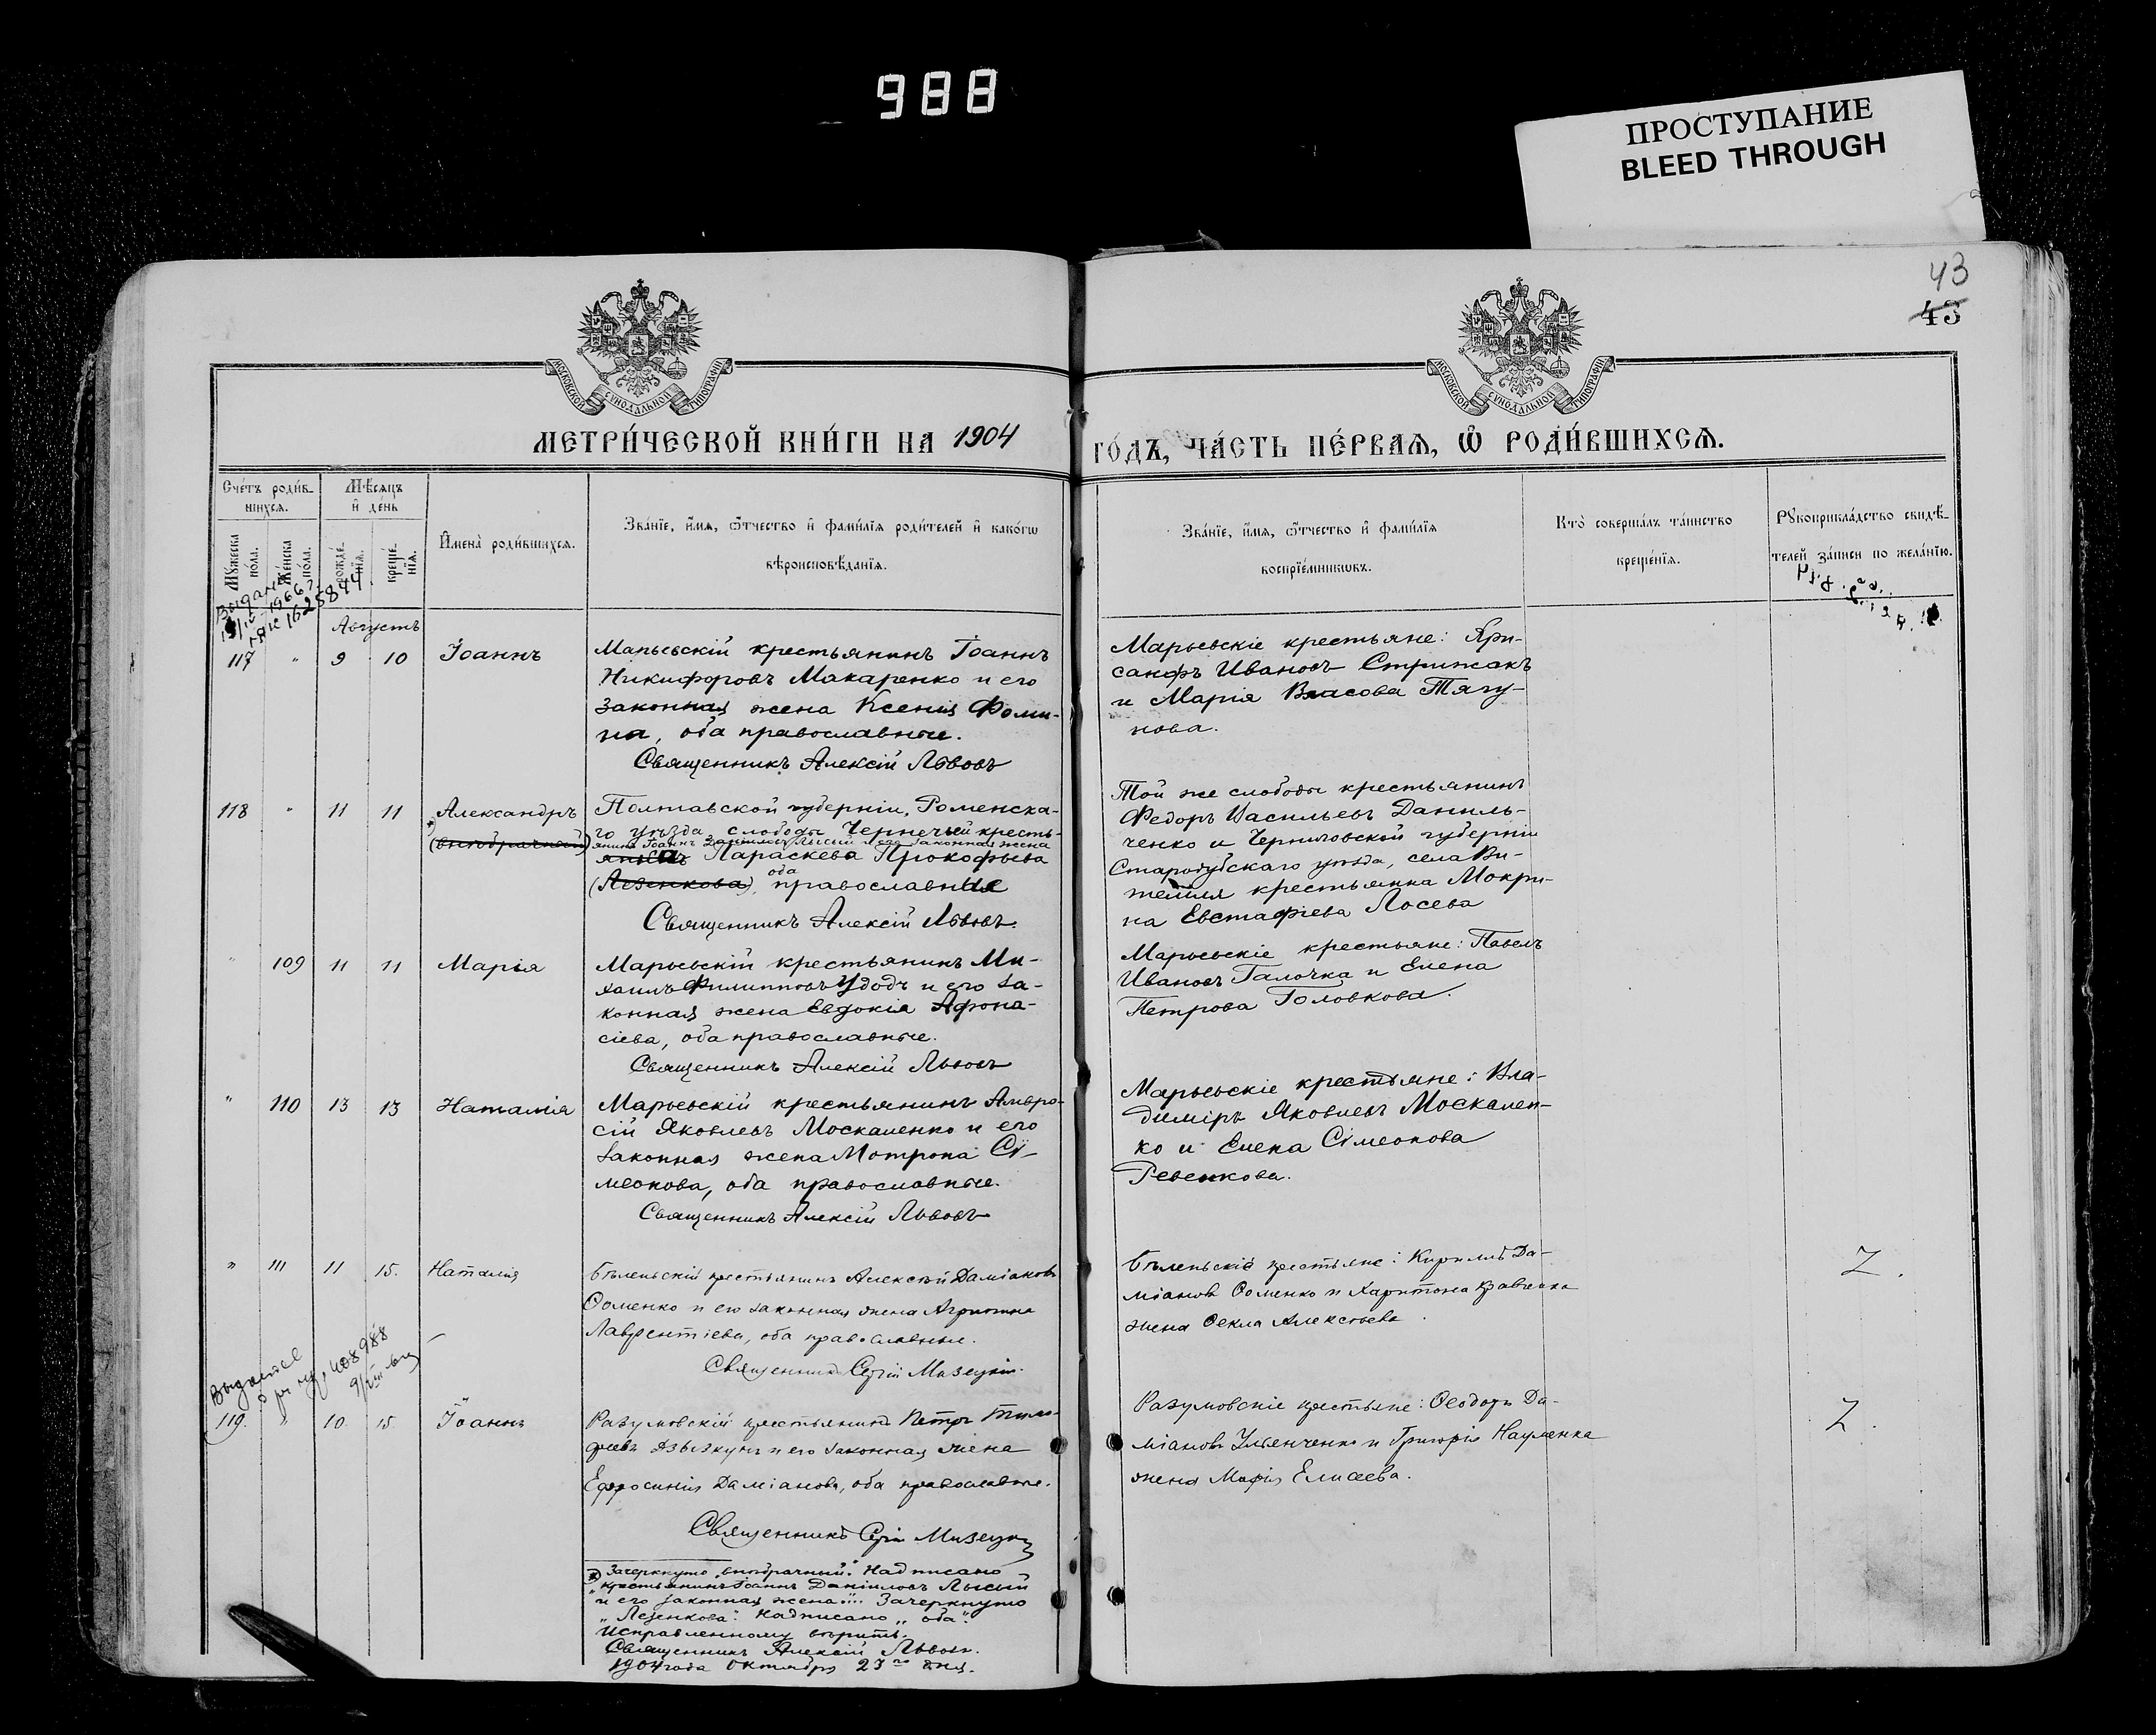 988
ПРОСТУПАНИЕ
BLEED THROUGH
43
43
МОСКОВСКОЙ СѴНОДАЛЬНОЙ ТИПОГРАФІИ
МОСКОВСКОЙ СѴНОДАЛЬНОЙ ТИПОГРАФІИ
МЕТРИ́ЧЕСКОЙ КНИ́ГИ НА 1904
ГО́ДЪ, ЧА́СТЬ ПЕ́РВАѦ, Ѿ РОДИ́ВШИХСѦ.
Сче́тъ роди́в-
шихсѧ.
Мѣ́сѧцъ
и҆ де́нь
Мꙋ́жеска
по́ла.
Же́нска
по́ла.
рожде́-
нїѧ.
креще́-
нїѧ.
И҆мена̀ роди́вшихсѧ.
Зва́нїе, и҆́мѧ, ѻ҆́тчество и҆ фами́лїѧ роди́телей и҆ како́гѡ
вѣроисповѣ́данїѧ.
Зва́нїе, и҆́мѧ, ѻ҆́тчество и҆ фами́лїѧ
воспрїе́мникѡвъ.
Кто̀ соверша́лъ та́инство
креще́нїѧ.
Рꙋкоприкла́дство свидѣ́-
телей за́писи по жела́нїю.
Августъ
117 " 9 10 Іоаннъ
Марьевскій крестьянинъ Іоаннъ
Никифоровъ Макаренко и его
законная жена Ксенія Фоми-
на, оба православные.
Священникъ Алексій Львовъ
Марьевскіе крестьяне: Хри-
санфъ Ивановъ Стрижакъ
и Марія Власова Тягу-
нова.
118 " 11 11 Александръ
(внѣбрачный)
Полтавской губерніи, Роменска-
го уѣзда слободы Чернечьей кресть-
янинъ Іоаннъ Даніиловъ Лысый и его законная жена
Параскева Прокофьева
оба
(Лезенкова), православные
Священникъ Алексій Львовъ.
Той же слободы крестьянинъ
Федоръ Васильевъ Даниль-
ченко и Черниговской губерніи
Стародубскаго уѣзда, села
крестьянка Мокри-
на Евстафіева Лосева
" 109 11 11 Марія
Марьевскій крестьянинъ Ми-
хаилъ Филипповъ Удодъ и его за-
конная жена Евдокія Афона-
сіева, оба православные.
Священникъ Алексій Львовъ
Марьевскіе крестьяне: Павелъ
Ивановъ Галочка и Елена
Петрова Головкова.
" 110 13 13 Наталія
Марьевскій крестьянинъ Амвро-
сій Яковлевъ Москаленко и его
законная жена Мотрона Сі-
меонова, оба православные.
Священникъ Алексій Львовъ
Марьевскіе крестьяне: Вла-
диміръ Яковлевъ Москален-
ко и Елена Сімеонова
Ревенкова.
" 111 11 15. Наталія
Бѣленьскій крестьянинъ Алексѣй Даміановъ
Ѳоменко и его законная жена Агрипина
Лаврентіева, оба православные.
Священникъ Сергій Мизецкій.
Бѣленьскіе крестьяне: Кириллъ Да-
міановъ Ѳоменко и Харитона Кравченка
жена Ѳекла Алексѣева.
119. " 10. 15. Іоаннъ
Разумовскій крестьянинъ Петръ Тимо-
феевъ и его законная жена
Ефросинія Даміанова, оба православные.
Священникъ Сергій Мизецкій
Разумовскіе крестьяне: Ѳеодоръ Да-
міановъ и Григорія Науменка
жена Марія Елисеева.
Зачеркнуто "внѣбрачный". Надписано
"крестьянинъ Іоаннъ Даніиловъ Лысый
и его законная жена". Зачеркнуто
"Лезенкова". Надписано "оба".
Исправленному вѣрить.
Священникъ Алексій Львовъ.
1904 года Октября 23 го дня.